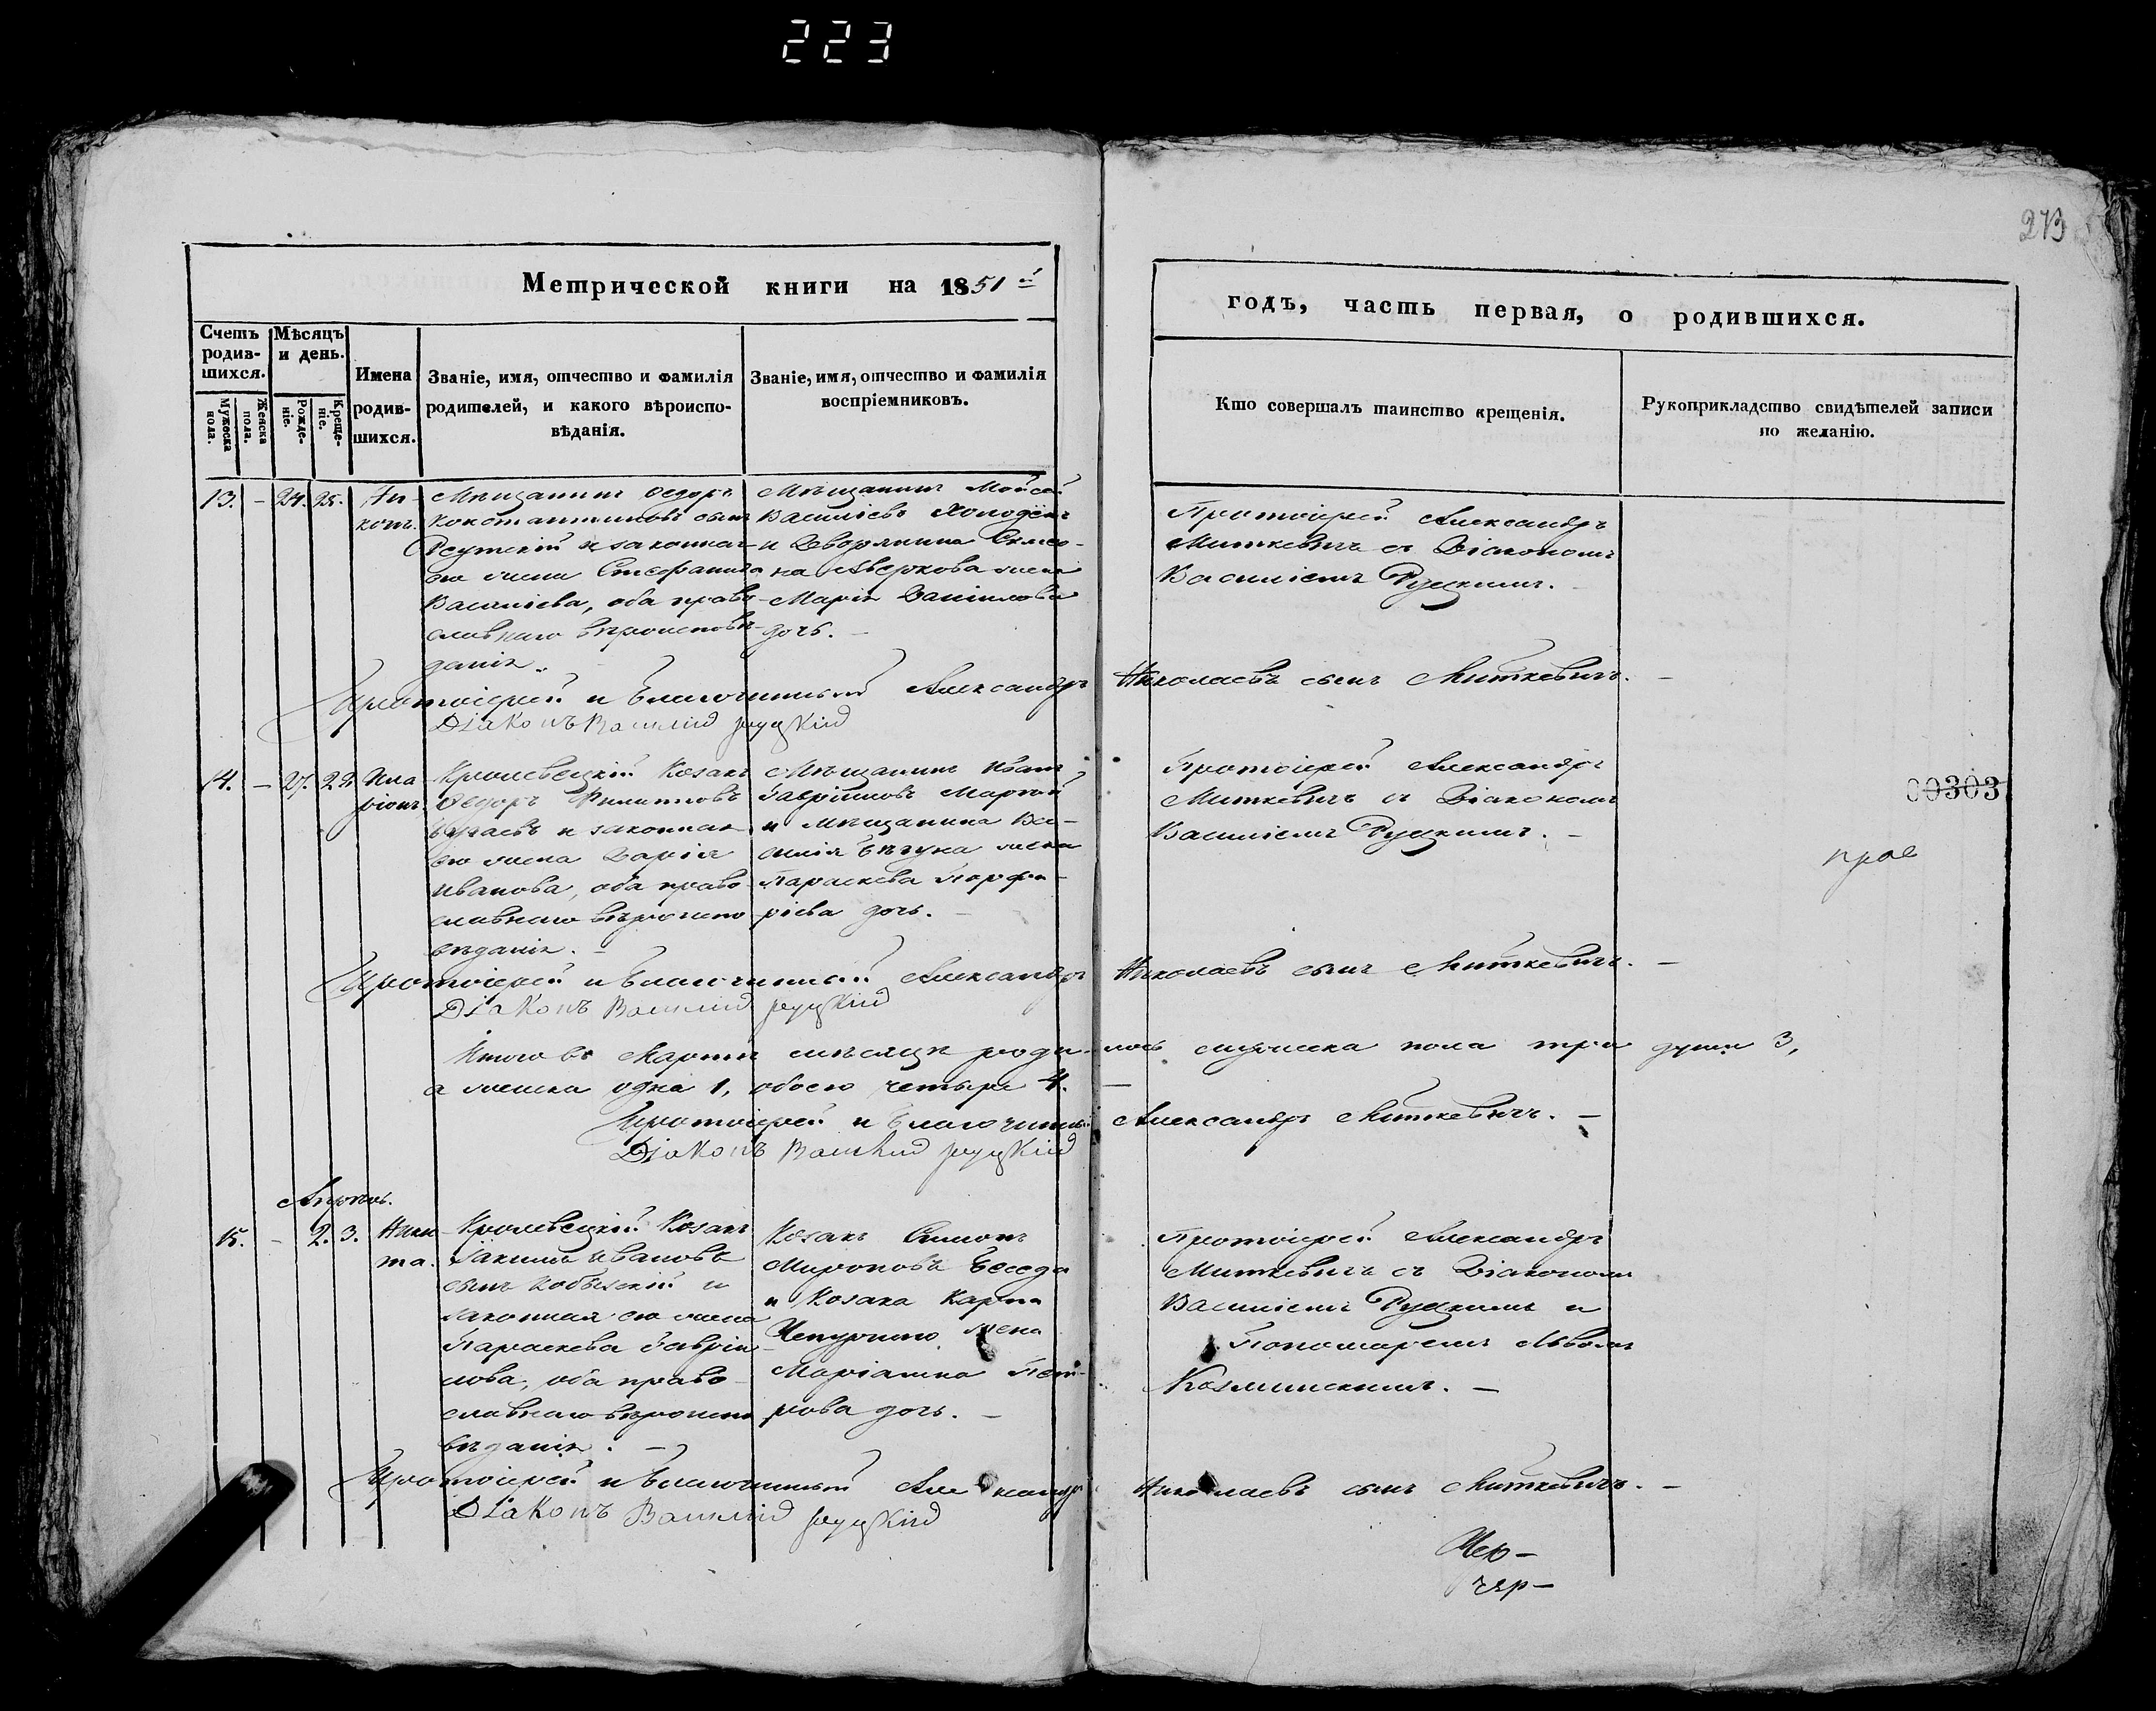 223
273
Метрической книги на 1851й
годъ, часть первая, о родившихся.
Счетъ родив-шихся.
Мужеска пола.
Женска пола.
Мѣсяцъ и день.
Рожде-ніе.
Креще-ніе.
Имена родив-шихся.
Званіе, имя, отчество и фамилія
родителей, и какого вѣроиспо-
вѣданія.
Званіе, имя, отчество и фамилія
воспріемниковъ.
Кто совершалъ таинство крещенія.
Рукоприкладство свидѣтелей записи
по желанію.
13. - 24. 25.
Мѣщанинъ Ѳедоръ
Константиновъ сынъ
и законная
его жена Стефанида
Василіева, оба право-
славнаго вѣроисповѣ-
данія.
Мѣщанинъ Мойсей
Василіевъ Холодёнъ
и Дворянина
Аверкова жена
Марія Даніилова
дочь.
Протоіерей Александръ
Миткевичъ съ Діакономъ
Василіемъ Руцкимъ.
Протоіерей и Благочинный Александръ Николаевъ сынъ Миткевичъ.
Діаконъ Василій Руцкій
14. - 27. 29. Ила-
ріонъ.
Кролевецкій Козакъ
Ѳедоръ Филипповъ
и законная
его жена Дарія
Иванова, оба право-
славнаго вѣроиспо-
вѣданія.
Мѣщанинъ Иванъ
Гавріиловъ Мартой
и Мѣщанина Ва-
силія Бѣгуна жена
Параскева Порфи-
ріева дочь.
Протоіерей Александръ
Миткевичъ съ Діакономъ
Василіемъ Руцкимъ.
00303
Протоіерей и Благочинный Александръ Николаевъ сынъ Миткевичъ.
Діаконъ Василій Руцкій
Итого въ Мартѣ мѣсяцѣ роди-лось мужеска пола три души 3,
а женска одна 1, обоего четыре 4.
Протоіерей и Благочинный Александръ Миткевичъ.
Діаконъ Василій Руцкій
Апрѣль.
15. - 2. 3. Ники-
та.
Кролевецкій Козакъ
Іакимъ Ивановъ
сынъ Кобыскій и
законная его жена
Параскева Гавріи-
лова, оба право-
славнаго вѣроиспо-
вѣданія.
Козакъ Симонъ
Мироновъ Беседа
и Козака Карпа
Чепурного жена
Маріанна Пет-
рова дочь.
Протоіерей Александръ
Миткевичъ съ Діакономъ
Василіемъ Руцкимъ и
Пономаремъ Львомъ
Козминскимъ.
Протоіерей и Благочинный Александръ Николаевъ сынъ Миткевичъ.
Діаконъ Василій Руцкій